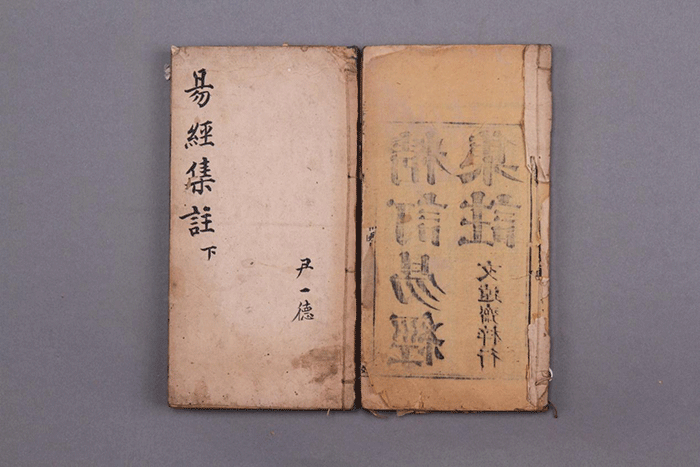 易經集註下
尹一德
精訂易經
集註
文遠齋梓行